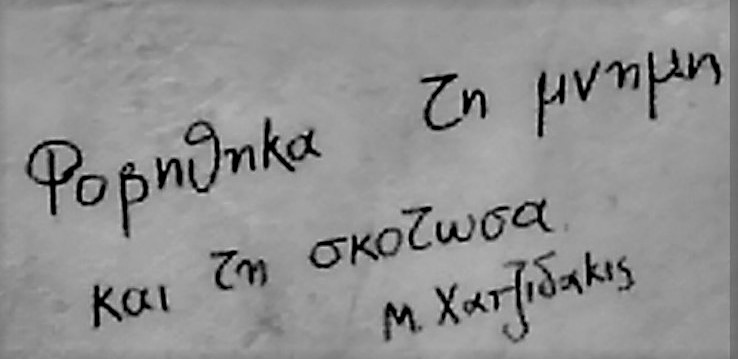 Φοβηθηκα τη μνημη
και τη σκοτωσα
Μ. Χατζιδακις